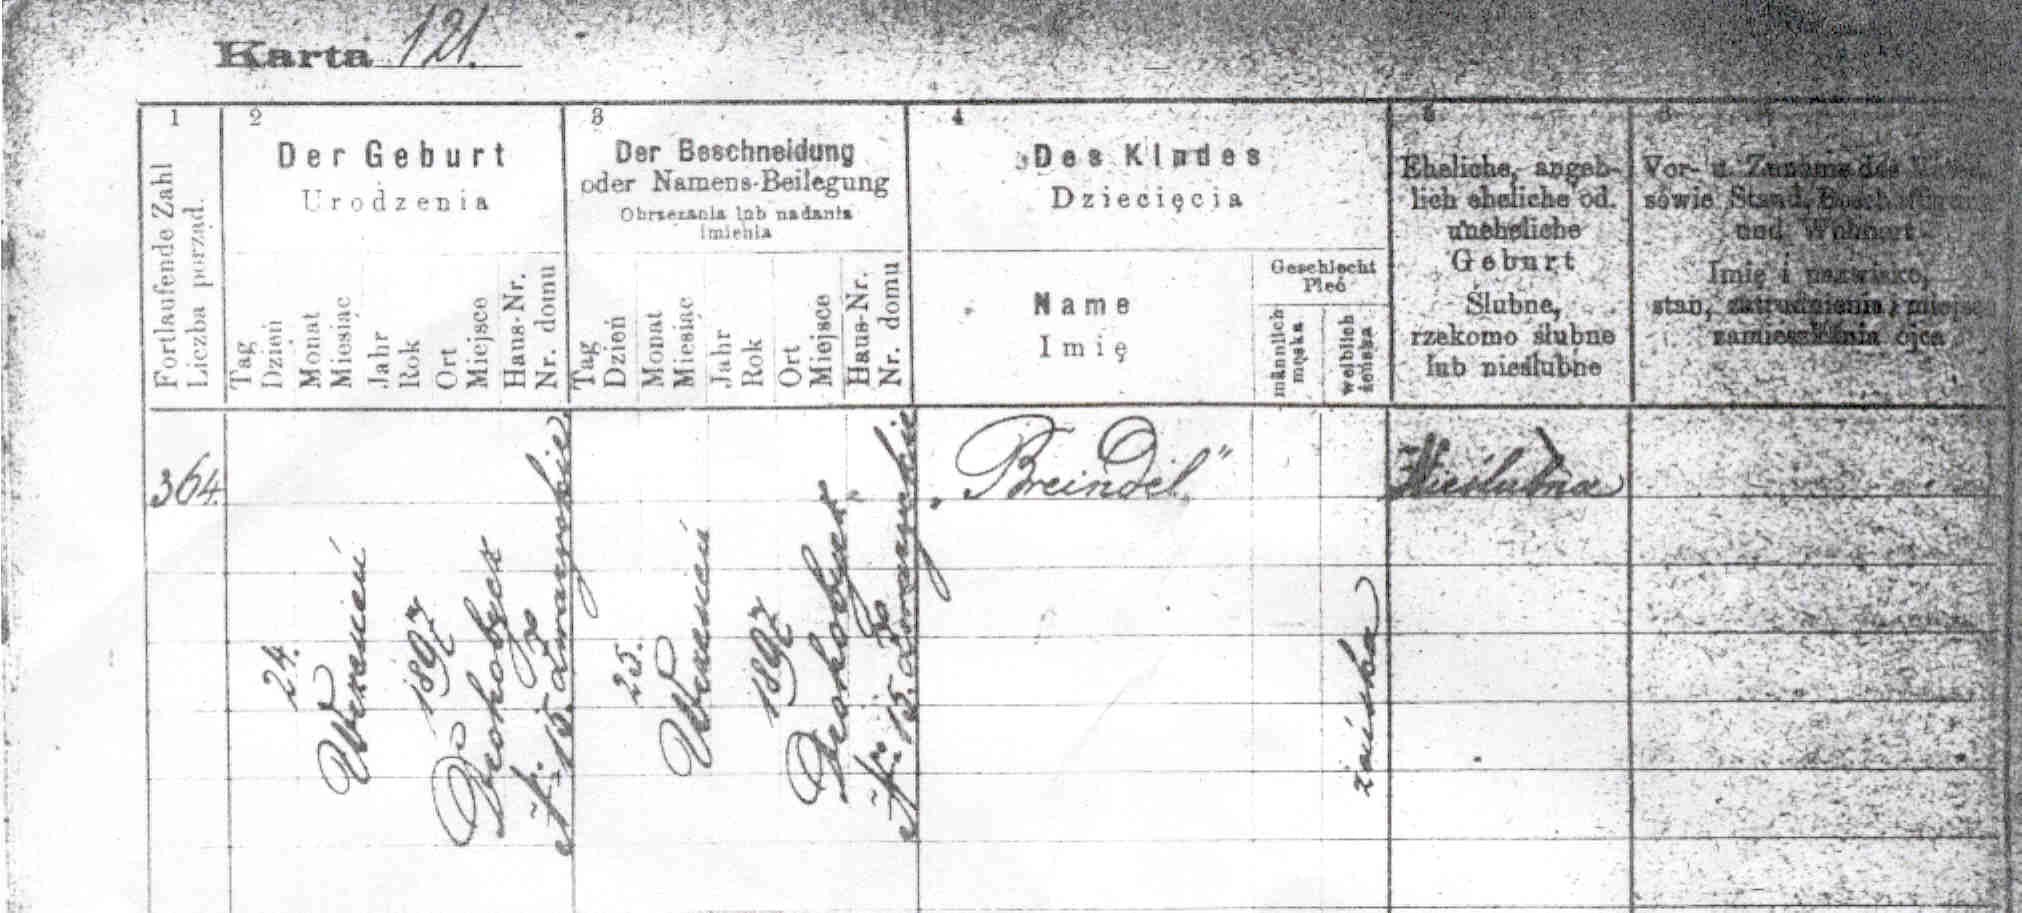 Karta 121.
1
2
3
4
5
Fortlaufende Zahl
Liczba porząd.
Der Geburt
Urodzenia
Tag
Dzień
Monat
Miesiąc
Jahr
Rok
Ort
Miejsce
Haus-Nr.
Nr. domu
Der Beschneidung
oder Namens-Beilegung
Obrzezania lub nadania
imienia
Tag
Dzień
Monat
Miesiąc
Jahr
Rok
Ort
Miejsce
Haus-Nr.
Nr. domu
Des Kindes
Dziecięcia
Name
Imię
Geschlecht
Płeć
männlich
męska
weiblich
żeńska
Eheliche, angeb-
lich eheliche od.
uneheliche
Geburt
Ślubne,
rzekomo ślubne
lub nieślubne
Vor- u. Zuname des
sowie Stand,
und Wohnort
Imię i nazwisko,
stan, zatrudnienie i miejsce
zamieszkania ojca
364.
24.
Wrzesień
1897
Drohobycz
15.
25.
Wrzesień
1897
Drohobycz
15.
„Breindel"
żeńska
Nieślubna